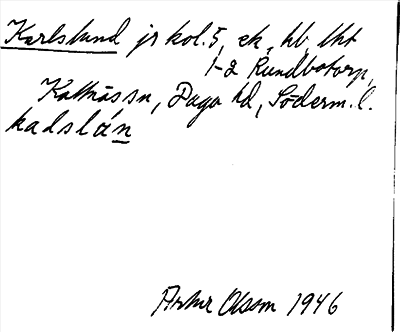 Karlslund jr kol. 5, ek, hb, lht
1-2 Rundbotorp,
Kattnäs sn, Daga hd, Söderm. l.
kadslán
Artur Olsson 1946